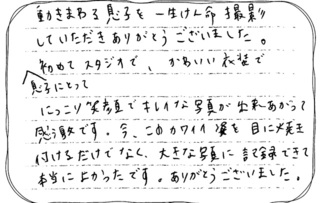 動きまわる息子を一生けん命撮影
していただきありがとうございました。
初めてスタジオで、かわいい衣装で
息子にとって
にっこり笑顔でキレイな写真が出来あがって
感激です。今、このカワイイ姿を目に焼き
付けるだけでなく、大きな写真に記録できて
本当によかったです。ありがとうございました。